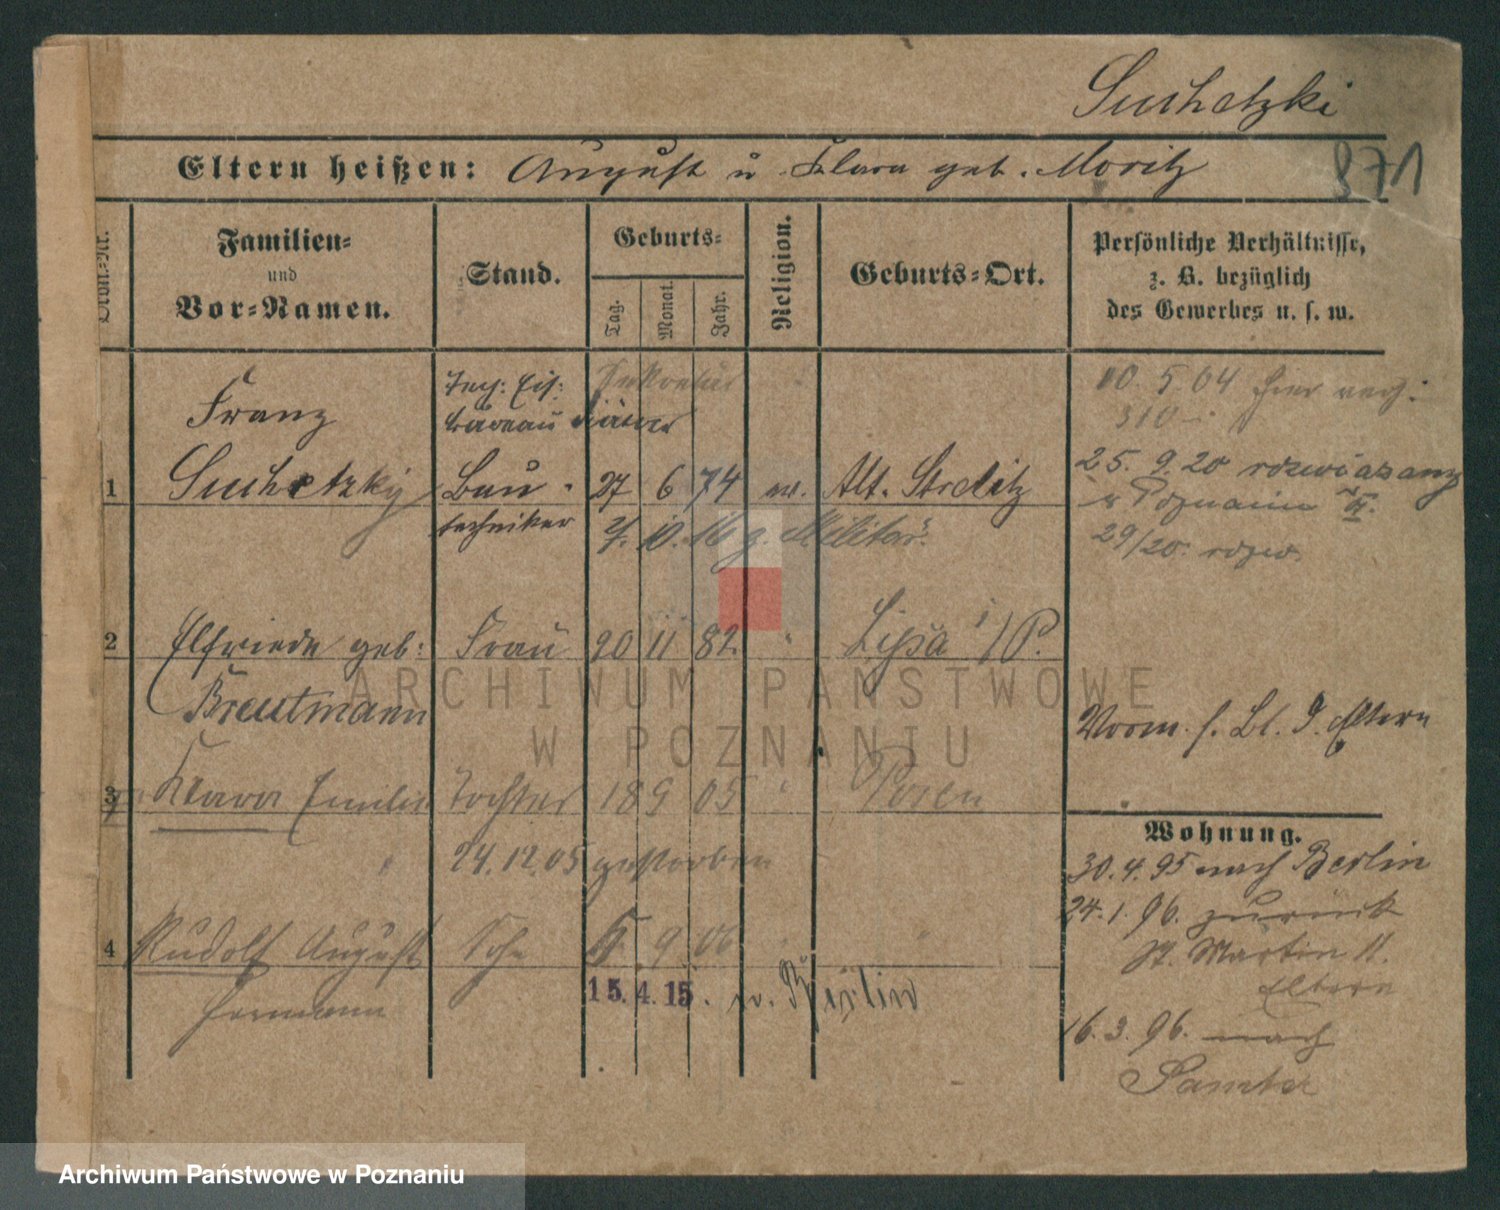 Suchetzki
Eltern heißen: August u. Klara geb. Moritz
971
Ordn.-Nr.
Familien-
und
Vor-Namen.
Stand.
Geburts-
Tag.
Monat.
Jahr.
Religion.
Geburts-Ort.
Persönliche Verhältnisse,
z. B. bezüglich
des Gewerbes u. s. w.
Tech: Eis: Sekretär
Franz büreau Diätar
1 Suchetzky Bau- 27 6 74 ev. Alt. Strelitz
techniker
g. Militär.
10. 5. 04 hier
310
25. 9. 20 rozwiązany
w Poznaniu
29/20. rozw.
2 Elfriede geb: Frau 20 11 82. " Lissa i/P.
Breutmann
Vorm. s. Bl. d. Eltern
3 Klara Emilie Tochter 18 9 05 " Posen
" 24.12.05 gestorben
4 Rudolf August Sohn 5 9 06 " "
Hermann
15. 4. 15. n. Berlin
Wohnung.
30. 4. 95 nach Berlin
24. 1. 96. zurück
St. Martin 11.
Eltern
16. 3. 96. nach
Samter
ARCHIWUM PAŃSTWOWE
W POZNANIU
Archiwum Państwowe w Poznaniu